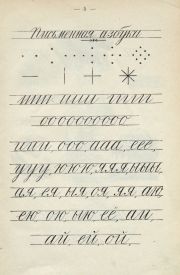 — 3 —
Письменная азбука
шт шиш тттт
оооооооооо
иии, ооо, ааа, еее,
ууу, ююю, яяя, ыыы
ая, ея, ыя, оя, яя, аю,
ею, ою, ыю, её, ай
ай, ей, ой,